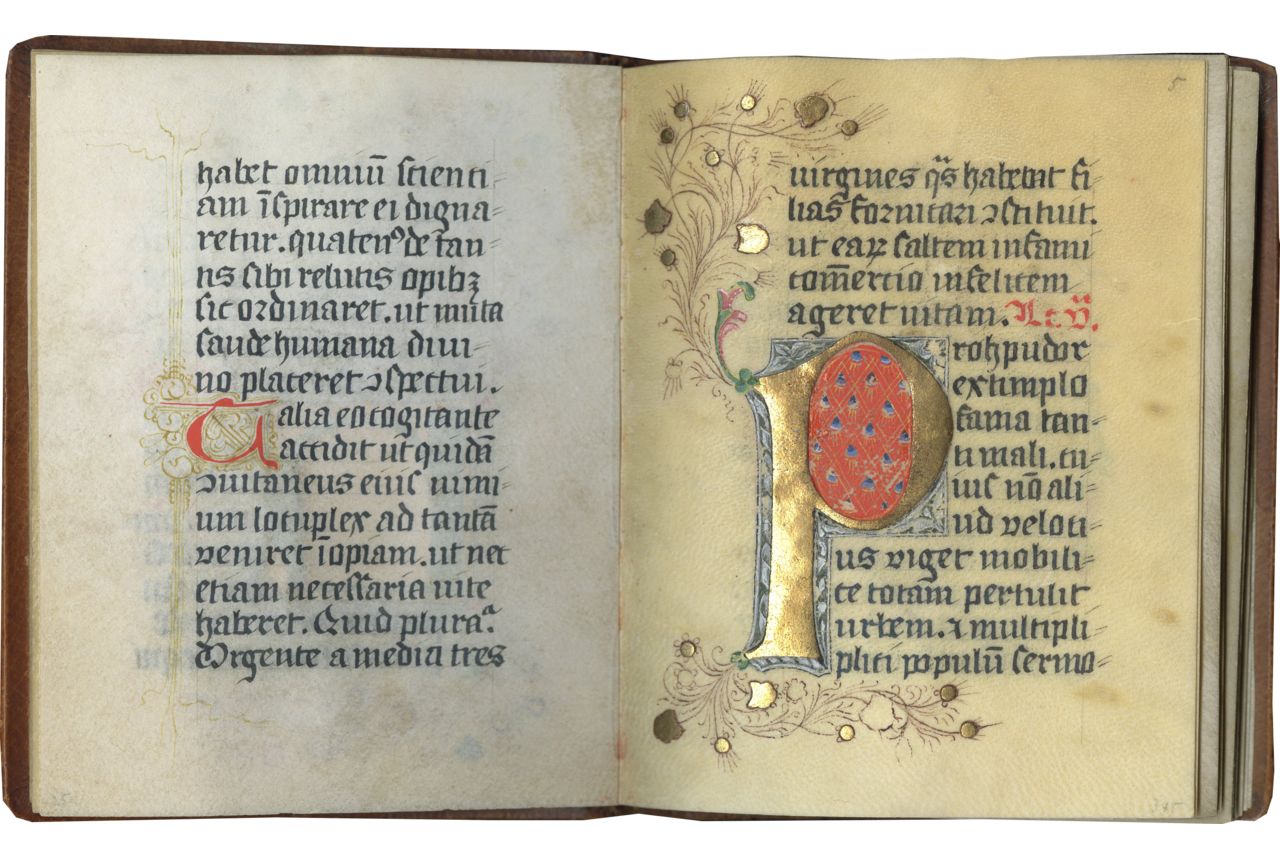 habet omniū scienti
am īspirare ei digna
retur. quaten⁹ de tan
tis sibi relictis opibꝫ
sic ordinaret. ut multa
saude humana diui
no placeret ɔspectui.
Talia eo cogitante
accidit ut quidā
ɔuitaneus eius nimi
um locuplex ad tantā
veniret īopiam. ut nec
etiam necessaria uite
haberet. Quid plura.
Vrgente a media tres
5
uirgines qͣs habebat fi
lias fornicari ɔstituit.
ut eaꝝ saltem infami
com̄ercio infelicem
ageret uitam. R. V̄.
Proh pudor
extimplo
fama tan
ti mali. cu
ius nō ali
ud veloci
us viget mobili
te totam pertulit
urbem. ⁊ multipli
pliti populū sermo
345